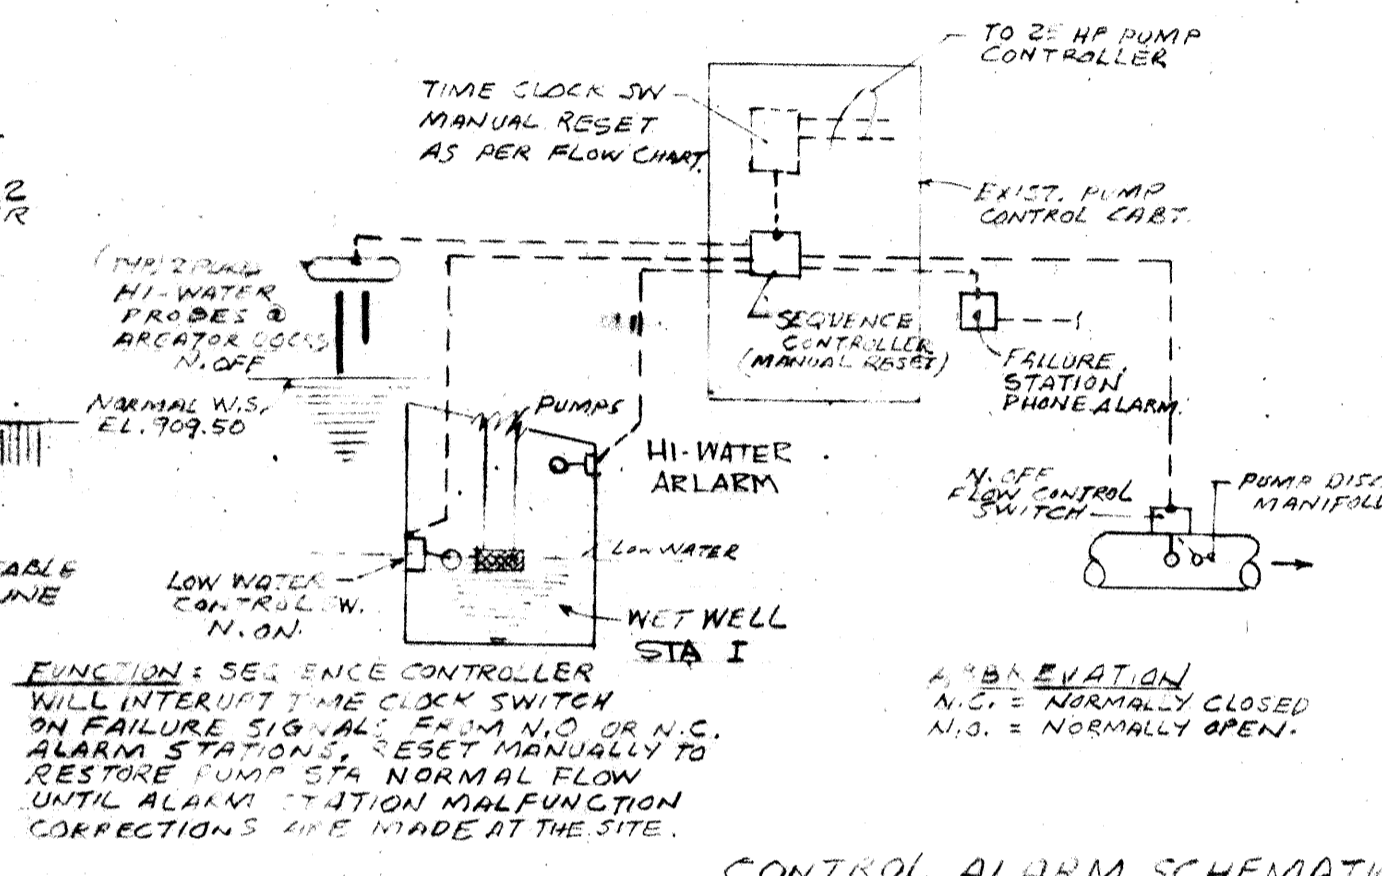 TO 25 HP PUMP
CONTROLLER
TIME CLOCK SW
MANUAL RESET
AS PER FLOW CHART.
2
R
EXIST. PUMP
CONTROL CABT.
(TYP) 2
HI-WATER
PROBES @
N. OFF
SEQUENCE
CONTROLLER
(MANUAL RESET)
FAILURE
STATION
PHONE ALARM.
NORMAL W.S.
EL. 909.50
PUMPS
HI-WATER
ARLARM
N. OFF
FLOW CONTROL
SWITCH
PUMP DISC
MANIFOL
LOW WATER
ABLE
LOW WATER
CONTROL SW.
N. ON.
WET WELL
STA I
FUNCTION: SEQUENCE CONTROLLER
WILL INTERUPT TIME CLOCK SWITCH
ON FAILURE SIGNALS FROM N.O OR N.C.
ALARM STATIONS, RESET MANUALLY TO
RESTORE PUMP STA NORMAL FLOW
UNTIL ALARM STATION MALFUNCTION
CORRECTIONS ARE MADE AT THE SITE.
ABBREVATION
N.C. = NORMALLY CLOSED
N.O. = NORMALLY OPEN.
CONTROL ALARM SCHEMATI